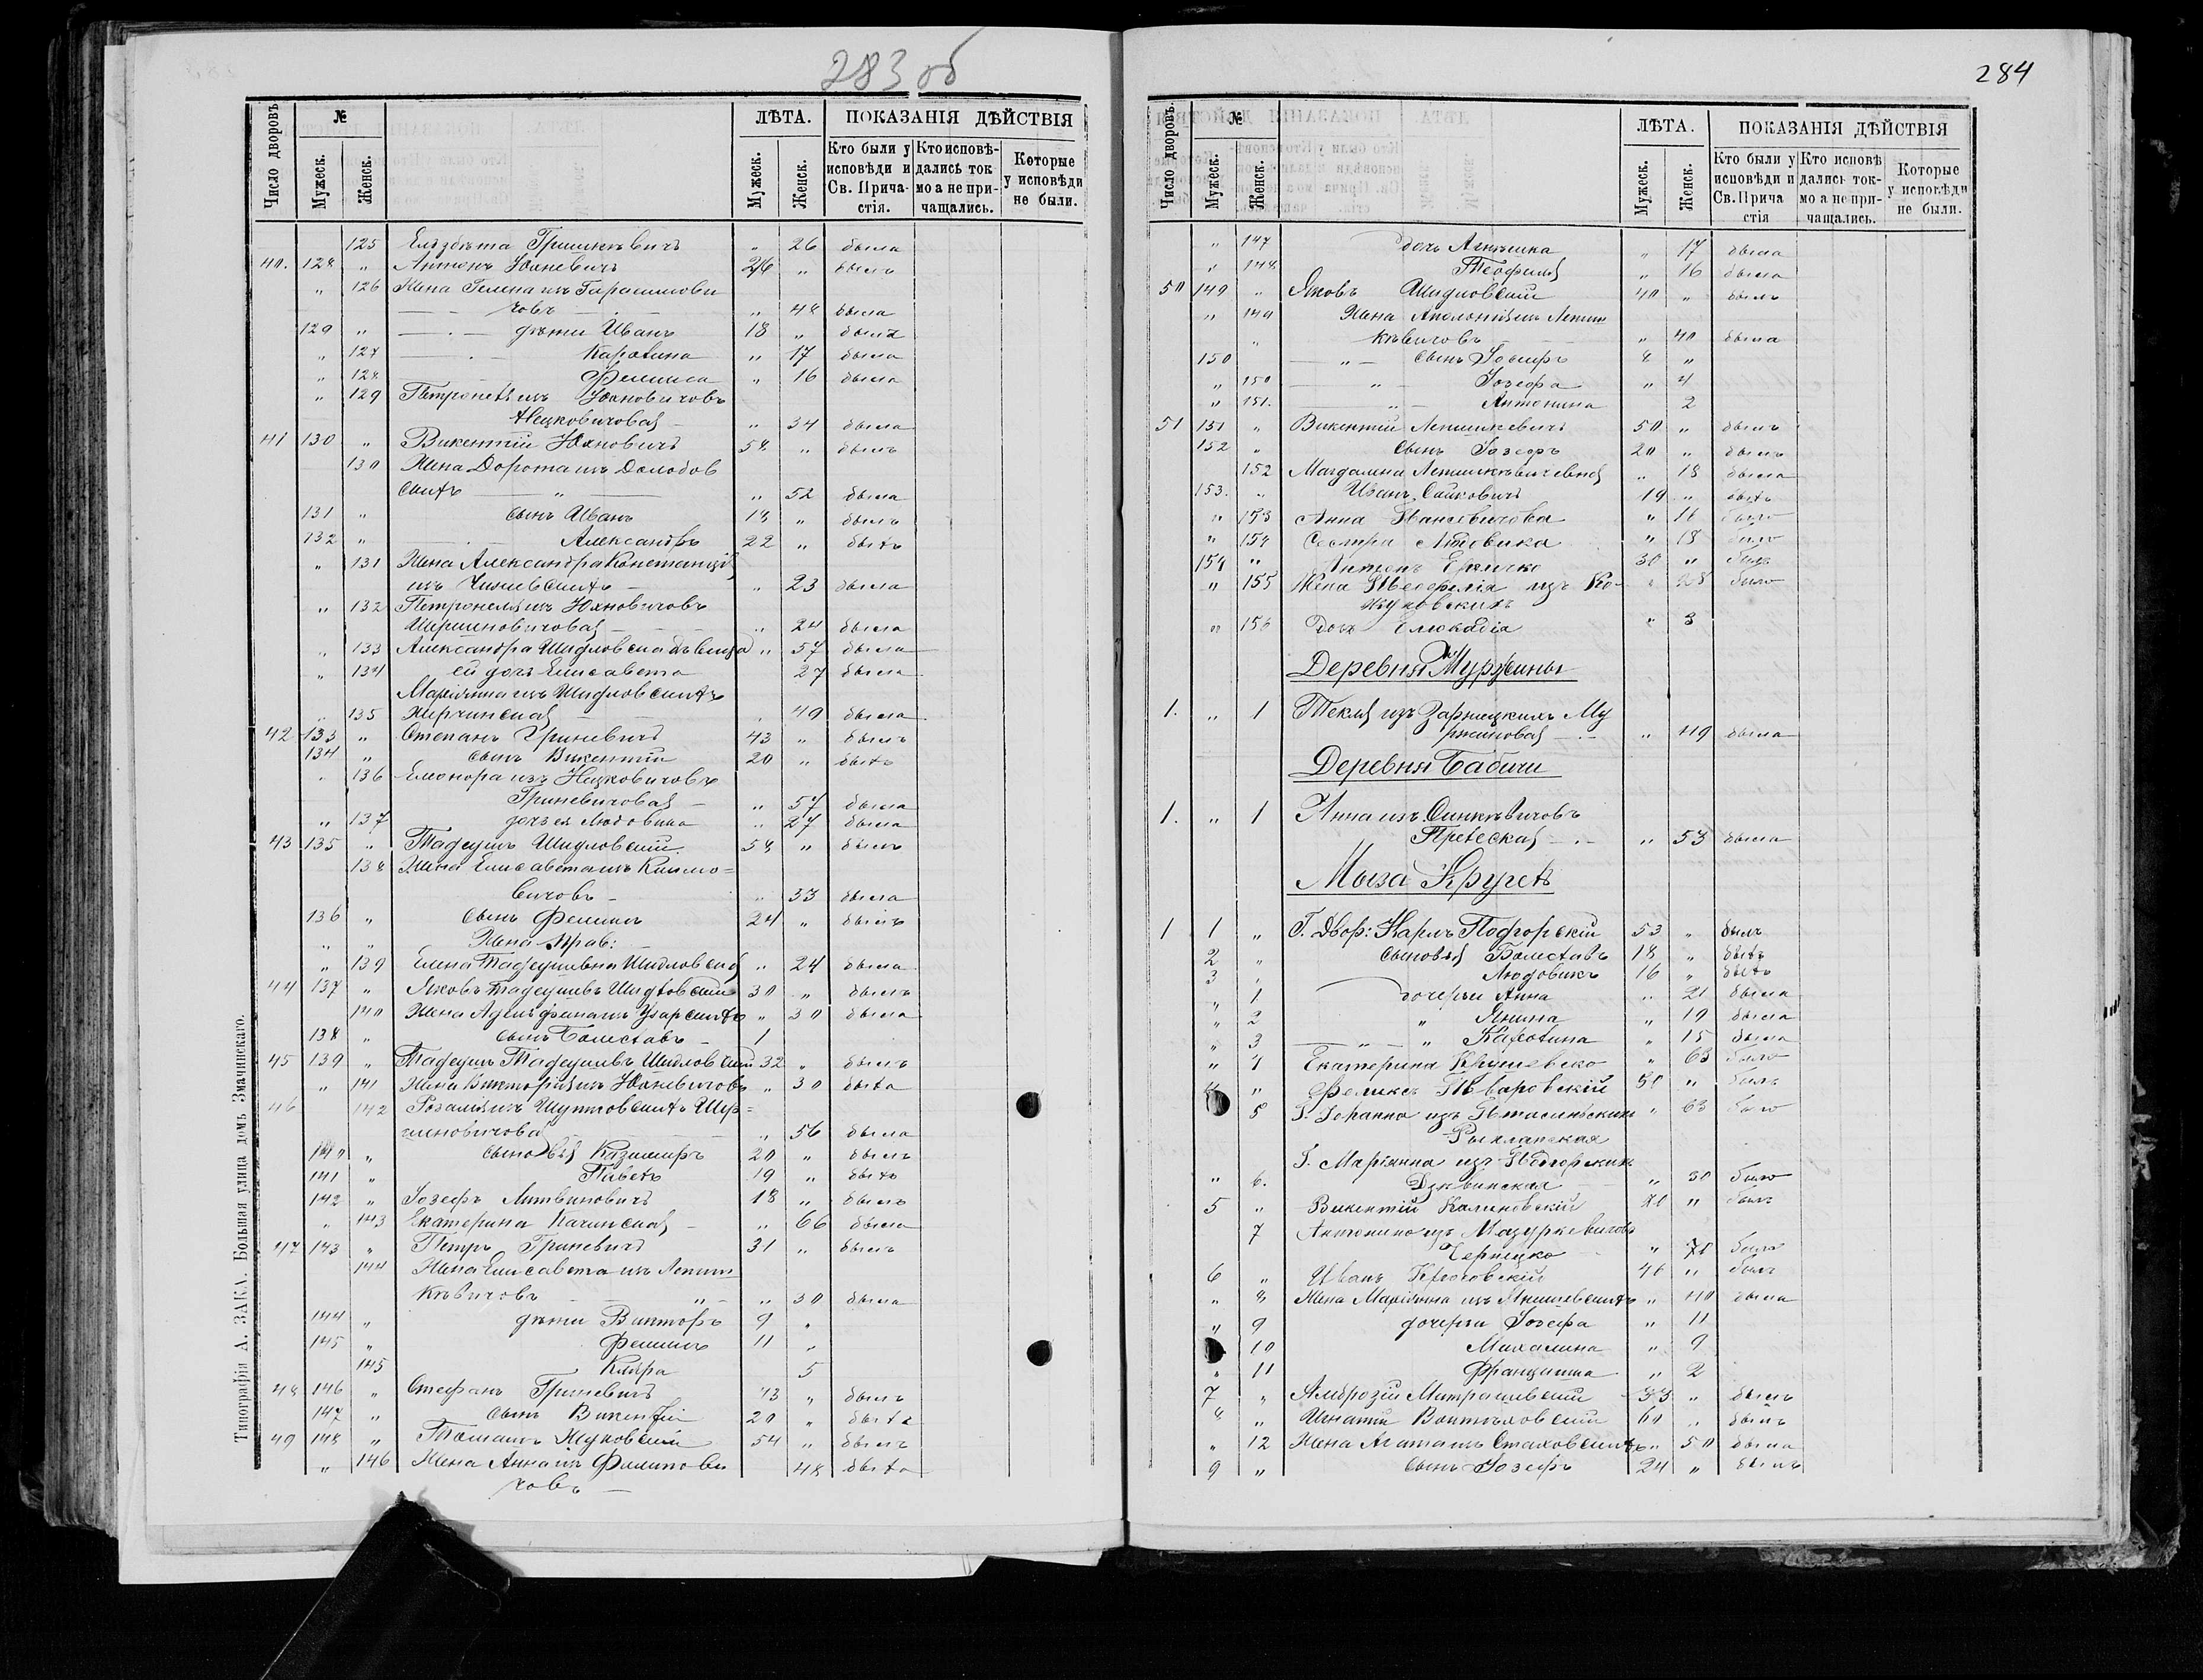 283 об
Число дворовъ
№
Мужеск.
Женск.
ЛѢТА.
Мужеск.
Женск.
ПОКАЗАНІЯ ДѢЙСТВІЯ
Кто были у исповѣди и Св. Прича-стія.
Кто исповѣ-дались ток мо а не при-чащались.
Которые у исповѣди не были.
125 " 26 была
40. 128 " Антонъ Юхневичъ 26 " былъ
" 126 Жена
човъ " 48 была
129 " дѣти Иванъ 18 " былъ
" 127 Каролина " 17 была
" 128 Фелиса " 16 была
" 129 Петронеля изъ Юхновичовъ
Нецковичовая " 34 была
41 130 " Викентій Юхновичъ 58 " былъ
130 Жена Дорота изъ
скихъ " " 52 была
131 " сынъ Иванъ 18 " былъ
132 " Александръ 22 " былъ
" 131 Жена Александра Констанція
изъ " 23 была
" 132 Петронеля изъ Юхновичовъ
" 24 была
" 133 Александра Шидловска " 57 была
" 134 ей дочь Елисавета 27 была
Маріянна изъ Шидловскихъ
" 135 " 49 была
42 133 " Степанъ Гриневичъ 43 " былъ
134 " сынъ Викентій 20 " былъ
" 136 Елеонора изъ Нецковичовъ
Гриневичовая " 57 была
" 137 дочь ея Людовика " 27 была
43 135 " Тадеушъ Шидловскій 58 " былъ
138 Жена Елисавета изъ Климо=
вичовъ " 33 была
136 " сынъ Феликсъ 24 " былъ
" " Жена
" 139 Елена Тадеушевна Шидловская " 24 была
44 137 " Яковъ Тадеушевъ Шидловскій 30 " былъ
140 Жена " 30 была
138 " сынъ Болеславъ 1
45 139 " Тадеушъ Тадеушевъ Шидловскій 32 " былъ
" 141 Жена Викторія изъ Юхневичовъ " 30 была
46 142 Розалія изъ Шутовскихъ Шер=
меновичова " 56 была
140 " сыновья Казимиръ 20 " былъ
141 " Павелъ 19 " былъ
142 " Іозефъ Литвиновичъ 18 " былъ
" 143 Екатерина Качинская " 66 была
47 143 " Петръ Гриневичъ 31 " былъ
144 Жена Елисавета изъ Лепеш
кѣвичовъ " " 30 была
144 " дѣти Викторъ 9 "
145 " Феликсъ 11 "
145 Кляра 5
48 146 " Стефанъ Гриневичъ 43 " былъ
147 " сынъ Викентій 20 " былъ
49 148 " Томашъ Жуковскій 54 " былъ
" 146 Жена Анна изъ Филипови 48 была
човъ
Типографія А. ЗАКА. Большая улица домъ Змачинскаго.
284
Число дворовъ.
№
Мужеск.
Женск.
ЛѢТА.
Мужеск.
Женск.
ПОКАЗАНІЯ ДѢЙСТВІЯ
Кто были у исповѣди и Св. Прича стія
Кто исповѣ дались ток-мо а не при-чащались.
Которые у исповѣди не были.
" 147 дочь Агнешка " 17 была
" 148 Теофиля " 16 была
50 149 " Яковъ Шидловскій 40 " былъ
" 149 Жена Аполонія изъ Лепеш
" кѣвичовъ " 40 была
150 " сынъ Іосифъ 8 "
" 150 " Іозефа " 4
" 151. " Антонина 2
51 151 " Викентій Лепешкевичъ 50 " былъ
152 " сынъ Іозефъ 20 " былъ
152 Магдалина Лепешкѣвичевна " 18 была
153. " Иванъ 19 " былъ
" 153 Анна " 16 была
" 154 Сестра Людовика " 18 была
154 " Антонъ 30 " былъ
" 155 Жена Теофилія изъ Ко- " 28 была
жуховскихъ
" 156 дочь " 3
Деревня Муржины
1. " 1 Текля изъ Зарницкихъ Му
ржиновая " 49 была
Деревня Бабичи
1. " 1 Анна изъ Синкѣвичовъ
" 53 была
Мыза
1 1 " Г. Двор: Карлъ Подгорскій 53 " былъ
2 " сыновья Болеславъ 18 " былъ
3 " Людовикъ 16 " былъ
" 1 дочери Анна " 21 была
" 2 " Янина " 19 была
" 3 " " Каролина " 15 была
" 4 Екатерина " 63 была
4 " Феликсъ Тваровскій 50 " былъ
5 Г. Іоганна изъ " 63 была
Г. Маріянна изъ Подгорскихъ
" 6. " 30 была
5 " Викентій Калиновскій " былъ
7 Антонина изъ Мазуркевичовъ
Черницка " 70 была
6 " Иванъ 46 " былъ
" 8 Жена Маріянна изъ " 40 была
" 9 дочери Іозефа " 11
10 Михалина " 9
" 11 Францишка " 2
7 " Амброзій 33 " былъ
8 " Игнатій 60 " былъ
" 12 Жена Агата изъ Стаховскихъ " 50 была
9 " сынъ Іозефъ 24 " былъ